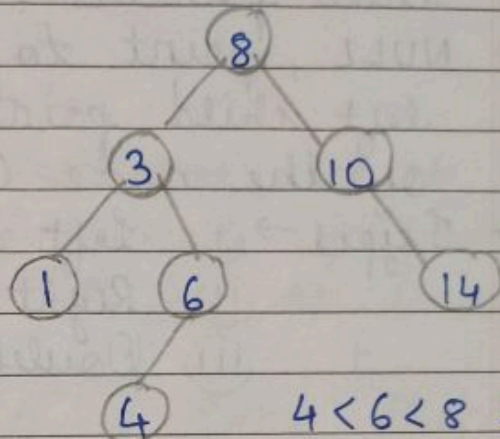 8
3 10
1 6 14
4 4 < 6 < 8